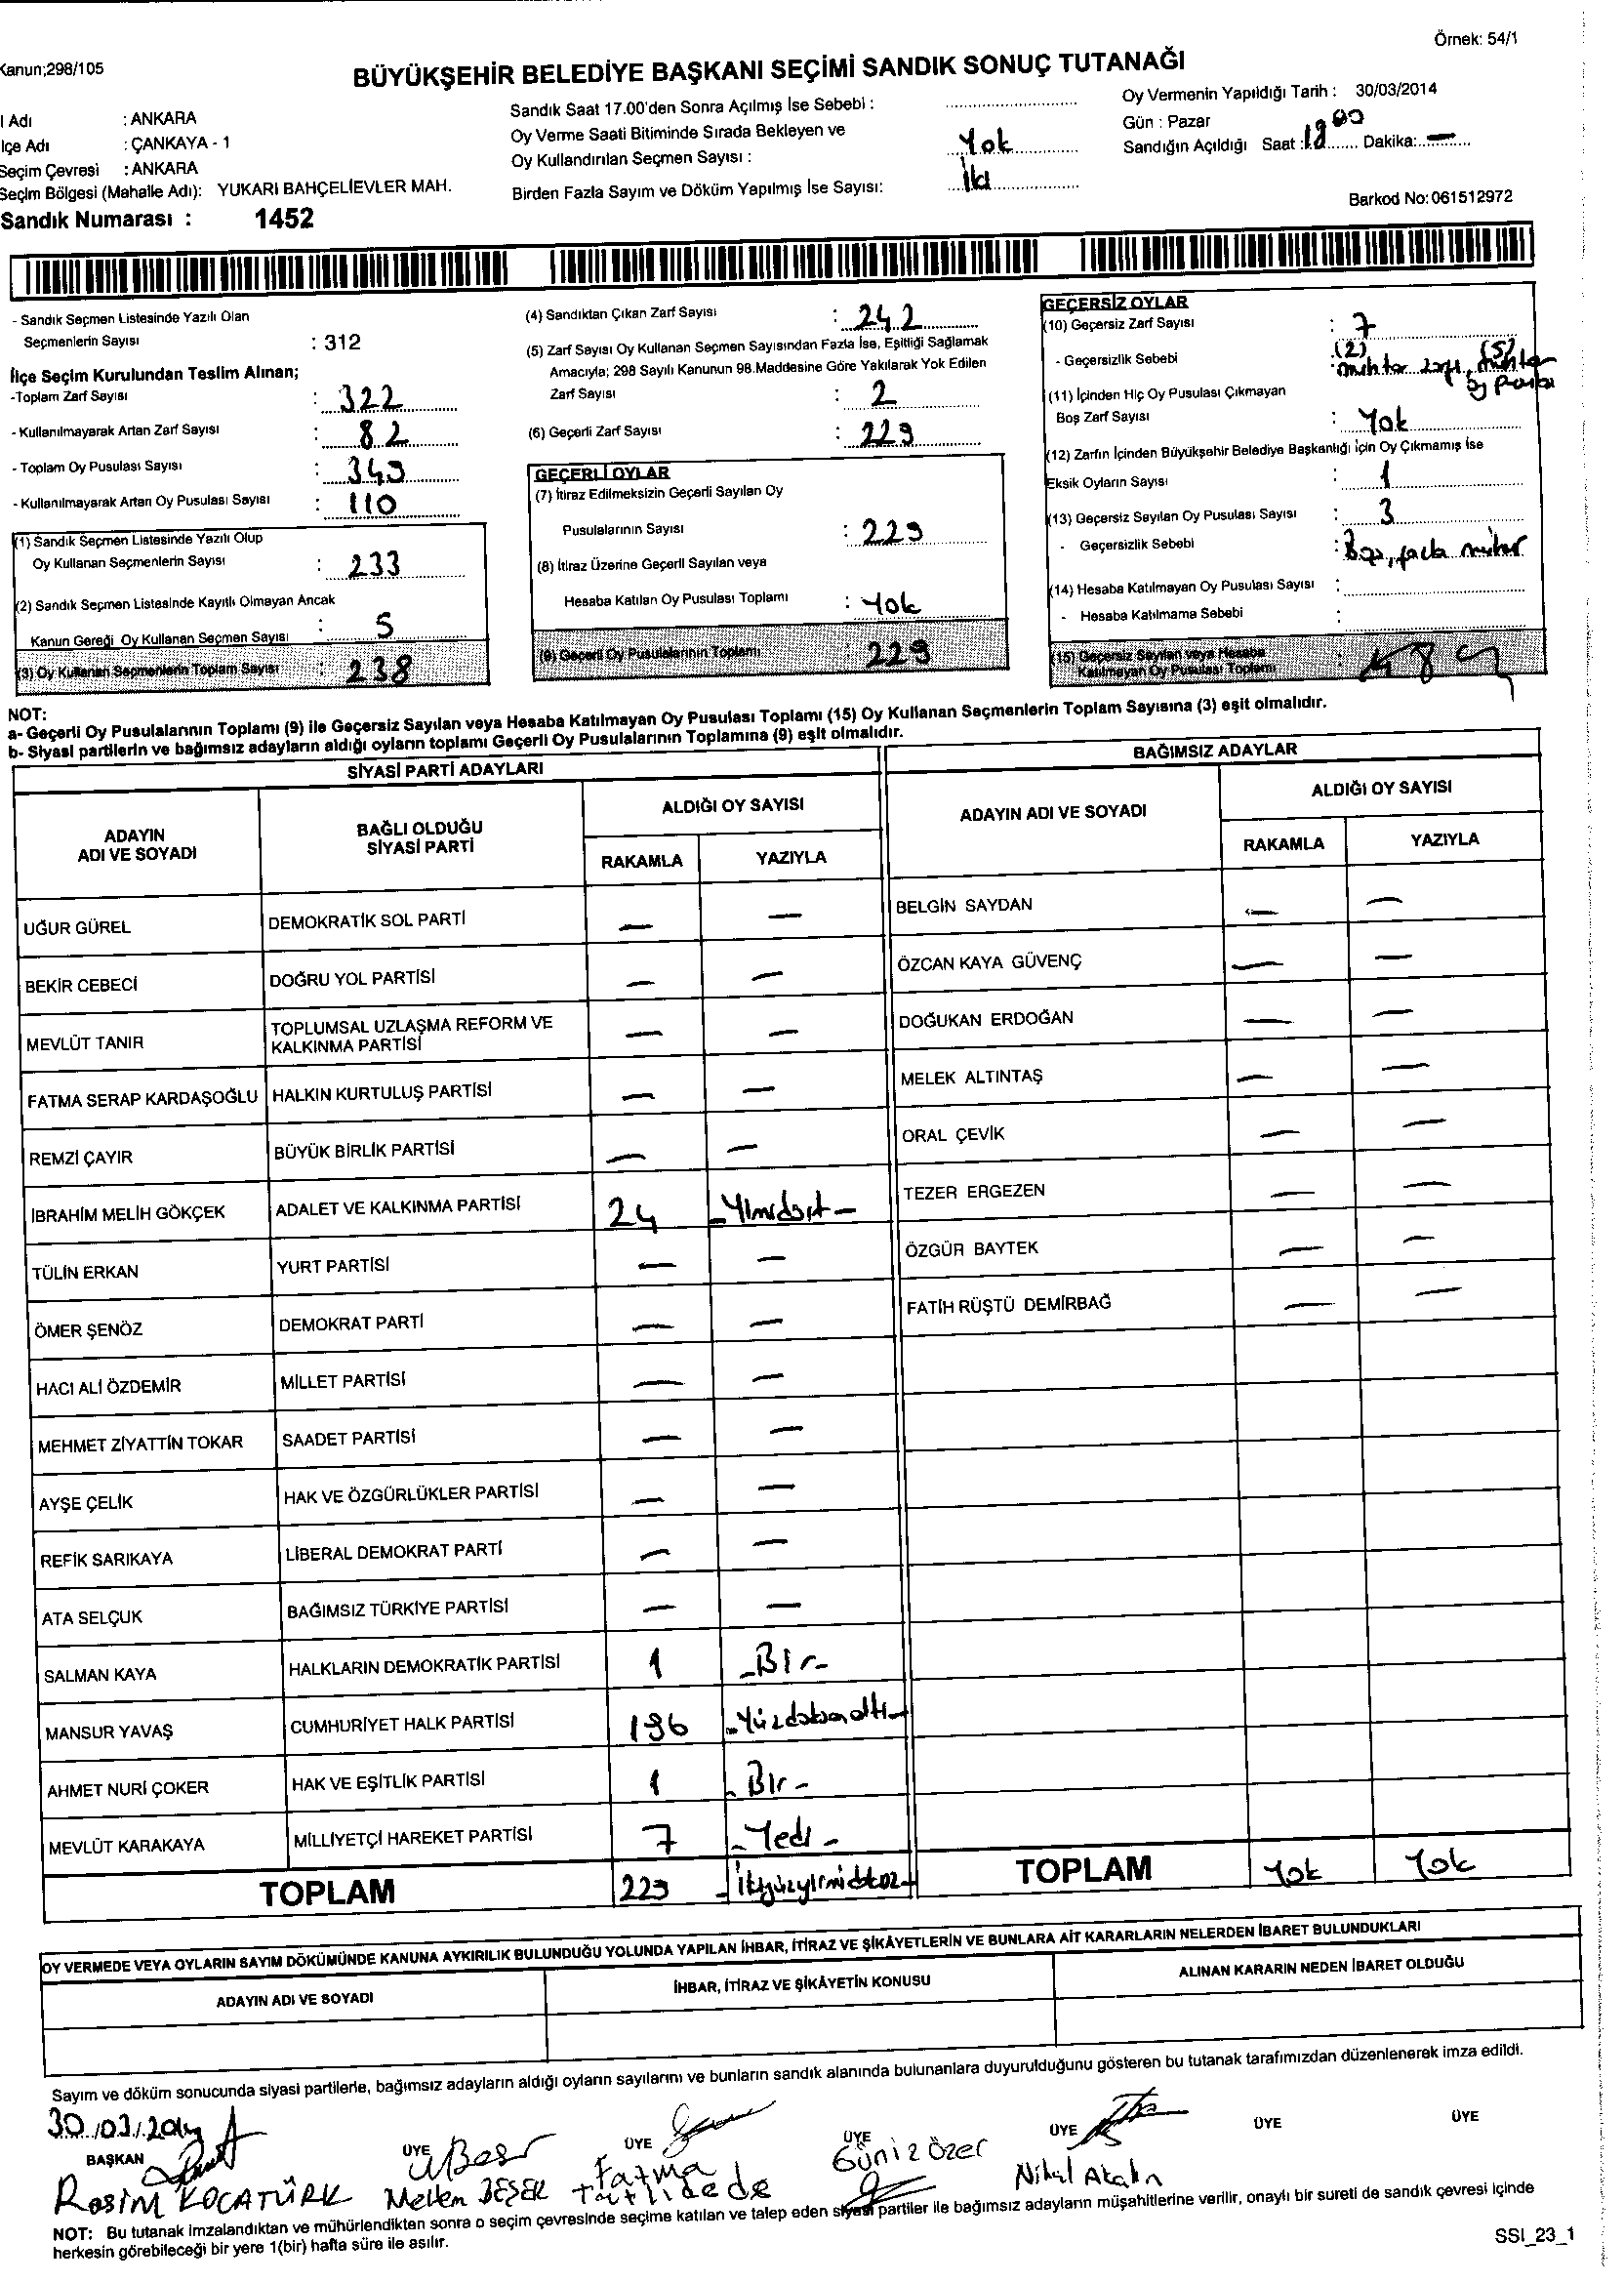 Örnek: 54/1
Kanun;298/105
BÜYÜKŞEHİR BELEDİYE BAŞKANI SEÇİMİ SANDIK SONUÇ TUTANAĞI
l Adı : ANKARA
lçe Adı : ÇANKAYA - 1
Seçim Çevresi : ANKARA
Seçim Bölgesi (Mahalle Adı): YUKARI BAHÇELİEVLER MAH.
Sandık Numarası : 1452
Sandık Saat 17.00'den Sonra Açılmış İse Sebebi :
Oy Verme Saati Bitiminde Sırada Bekleyen ve
Oy Kullandırılan Seçmen Sayısı : Yok
Birden Fazla Sayım ve Döküm Yapılmış İse Sayısı: İki
Oy Vermenin Yapıldığı Tarih : 30/03/2014
Gün : Pazar
Sandığın Açıldığı Saat : 18 00 Dakika: —
Barkod No: 061512972
- Sandık Seçmen Listesinde Yazılı Olan
Seçmenlerin Sayısı : 312
İlçe Seçim Kurulundan Teslim Alınan;
-Toplam Zarf Sayısı : 322
- Kullanılmayarak Artan Zarf Sayısı : 82
- Toplam Oy Pusulası Sayısı : 349
- Kullanılmayarak Artan Oy Pusulası Sayısı : 110
(1) Sandık Seçmen Listesinde Yazılı Olup
Oy Kullanan Seçmenlerin Sayısı : 233
(2) Sandık Seçmen Listesinde Kayıtlı Olmayan Ancak
Kanun Gereği Oy Kullanan Seçmen Sayısı : 5
(3) Oy Kullanan Seçmenlerin Toplam Sayısı : 238
(4) Sandıktan Çıkan Zarf Sayısı : 242
(5) Zarf Sayısı Oy Kullanan Seçmen Sayısından Fazla İse, Eşitliği Sağlamak
Amacıyla; 298 Sayılı Kanunun 98.Maddesine Göre Yakılarak Yok Edilen
Zarf Sayısı : 2
(6) Geçerli Zarf Sayısı : 229
GEÇERLİ OYLAR
(7) İtiraz Edilmeksizin Geçerli Sayılan Oy
Pusulalarının Sayısı : 229
(8) İtiraz Üzerine Geçerli Sayılan veya
Hesaba Katılan Oy Pusulası Toplamı : Yok
(9) Geçerli Oy Pusulalarının Toplamı : 229
GEÇERSİZ OYLAR
(10) Geçersiz Zarf Sayısı : 7
- Geçersizlik Sebebi : (2) muhtar zarfı, (5) muhtar
oy pusula
(11) İçinden Hiç Oy Pusulası Çıkmayan
Boş Zarf Sayısı : Yok
(12) Zarfın İçinden Büyükşehir Belediye Başkanlığı için Oy Çıkmamış İse
Eksik Oyların Sayısı : 1
(13) Geçersiz Sayılan Oy Pusulası Sayısı : 3
- Geçersizlik Sebebi : Boş, fazla mühür
(14) Hesaba Katılmayan Oy Pusulası Sayısı :
- Hesaba Katılmama Sebebi :
(15) Geçersiz Sayılan veya Hesaba
Katılmayan Oy Pusulası Toplamı :
NOT:
a- Geçerli Oy Pusulalarının Toplamı (9) ile Geçersiz Sayılan veya Hesaba Katılmayan Oy Pusulası Toplamı (15) Oy Kullanan Seçmenlerin Toplam Sayısına (3) eşit olmalıdır.
b- Siyasi partilerin ve bağımsız adayların aldığı oyların toplamı Geçerli Oy Pusulalarının Toplamına (9) eşit olmalıdır.
SİYASİ PARTİ ADAYLARI
ADAYIN ADI VE SOYADI BAĞLI OLDUĞU SİYASİ PARTİ ALDIĞI OY SAYISI
RAKAMLA YAZIYLA
UĞUR GÜREL DEMOKRATİK SOL PARTİ — —
BEKİR CEBECİ DOĞRU YOL PARTİSİ — —
MEVLÜT TANIR TOPLUMSAL UZLAŞMA REFORM VE KALKINMA PARTİSİ — —
FATMA SERAP KARDAŞOĞLU HALKIN KURTULUŞ PARTİSİ — —
REMZİ ÇAYIR BÜYÜK BİRLİK PARTİSİ — —
İBRAHİM MELİH GÖKÇEK ADALET VE KALKINMA PARTİSİ 24 - Yirmidört -
TÜLİN ERKAN YURT PARTİSİ — —
ÖMER ŞENÖZ DEMOKRAT PARTİ — —
HACI ALİ ÖZDEMİR MİLLET PARTİSİ — —
MEHMET ZİYATTİN TOKAR SAADET PARTİSİ — —
AYŞE ÇELİK HAK VE ÖZGÜRLÜKLER PARTİSİ — —
REFİK SARIKAYA LİBERAL DEMOKRAT PARTİ — —
ATA SELÇUK BAĞIMSIZ TÜRKİYE PARTİSİ — —
SALMAN KAYA HALKLARIN DEMOKRATİK PARTİSİ 1 - Bir -
MANSUR YAVAŞ CUMHURİYET HALK PARTİSİ 196 - Yüzdoksanaltı -
AHMET NURİ ÇOKER HAK VE EŞİTLİK PARTİSİ 1 - Bir -
MEVLÜT KARAKAYA MİLLİYETÇİ HAREKET PARTİSİ 7 - Yedi -
TOPLAM 229 - İkiyüzyirmidokuz -
BAĞIMSIZ ADAYLAR
ADAYIN ADI VE SOYADI ALDIĞI OY SAYISI
RAKAMLA YAZIYLA
BELGİN SAYDAN — —
ÖZCAN KAYA GÜVENÇ — —
DOĞUKAN ERDOĞAN — —
MELEK ALTINTAŞ — —
ORAL ÇEVİK — —
TEZER ERGEZEN — —
ÖZGÜR BAYTEK — —
FATİH RÜŞTÜ DEMİRBAĞ — —
TOPLAM Yok Yok
OY VERMEDE VEYA OYLARIN SAYIM DÖKÜMÜNDE KANUNA AYKIRILIK BULUNDUĞU YOLUNDA YAPILAN İHBAR, İTİRAZ VE ŞİKÂYETLERİN VE BUNLARA AİT KARARLARIN NELERDEN İBARET BULUNDUKLARI
ADAYIN ADI VE SOYADI İHBAR, İTİRAZ VE ŞİKÂYETİN KONUSU ALINAN KARARIN NEDEN İBARET OLDUĞU
Sayım ve döküm sonucunda siyasi partilerle, bağımsız adayların aldığı oyların sayılarını ve bunların sandık alanında bulunanlara duyurulduğunu gösteren bu tutanak tarafımızdan düzenlenerek imza edildi.
30/03/2014
BAŞKAN ÜYE ÜYE ÜYE ÜYE ÜYE ÜYE
Rasim KOCATÜRK Meltem BEŞER Fatma Tatlıdede Güniz Özer Nihal Akalın
NOT: Bu tutanak imzalandıktan ve mühürlendikten sonra o seçim çevresinde seçime katılan ve talep eden siyasi partiler ile bağımsız adayların müşahitlerine verilir, onaylı bir sureti de sandık çevresi içinde
herkesin görebileceği bir yere 1(bir) hafta süre ile asılır.
SSI_23_1